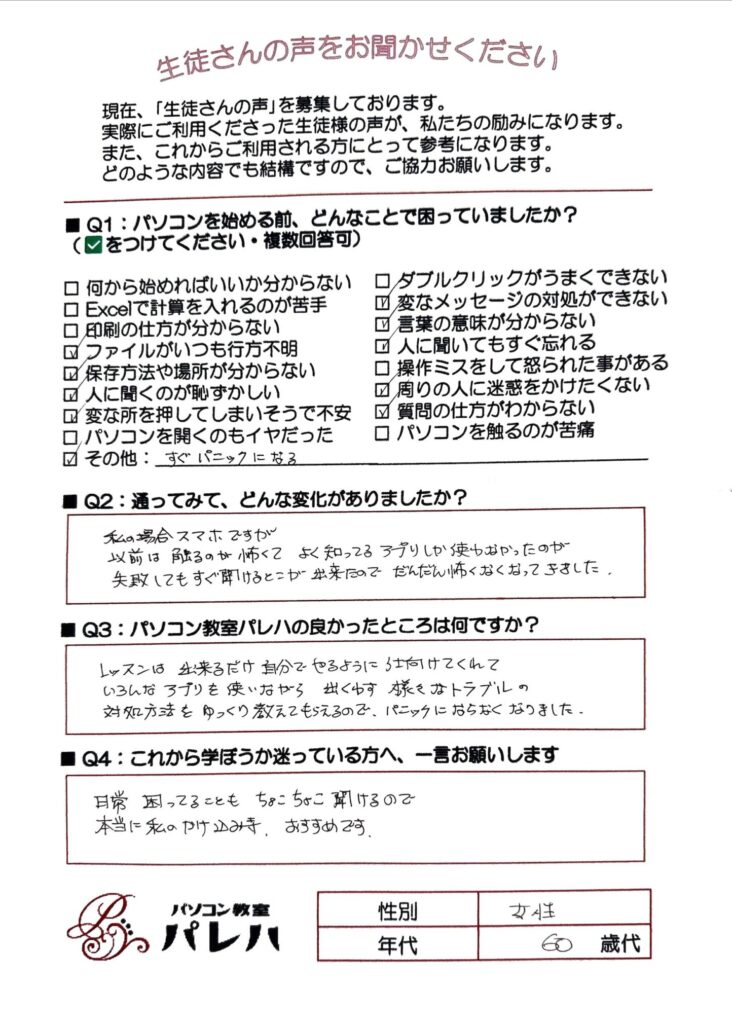 生徒さんの声をお聞かせください
現在、「生徒さんの声」を募集しております。
実際にご利用くださった生徒様の声が、私たちの励みになります。
また、これからご利用される方にとって参考になります。
どのような内容でも結構ですので、ご協力お願いします。
■ Q1：パソコンを始める前、どんなことで困っていましたか？
（☑をつけてください・複数回答可）
☐ 何から始めればいいか分からない
☐ Excelで計算を入れるのが苦手
☐ 印刷の仕方が分からない
☑ ファイルがいつも行方不明
☑ 保存方法や場所が分からない
☑ 人に聞くのが恥ずかしい
☑ 変な所を押してしまいそうで不安
☐ パソコンを開くのもイヤだった
☑ その他：すぐパニックになる
☐ ダブルクリックがうまくできない
☑ 変なメッセージの対処ができない
☑ 言葉の意味が分からない
☑ 人に聞いてもすぐ忘れる
☐ 操作ミスをして怒られた事がある
☑ 周りの人に迷惑をかけたくない
☑ 質問の仕方がわからない
☐ パソコンを触るのが苦痛
■ Q2：通ってみて、どんな変化がありましたか？
私の場合スマホですが
以前は 触るのが怖くて よく知ってるアプリしか使わなかったのが
失敗してもすぐ聞けるとこが出来たので だんだん怖くなくなってきました.
■ Q3：パソコン教室パレハの良かったところは何ですか？
レッスンは 出来るだけ自分でやるように仕向けてくれて
いろんなアプリを使いながら 出くわす 様々なトラブルの
対処方法を ゆっくり教えてもらえるので、パニックにならなくなりました.
■ Q4：これから学ぼうか迷っている方へ、一言お願いします
日常 困ってることも ちょこちょこ聞けるので
本当に私のかけ込み寺. おすすめです.
パソコン教室
パレハ
性別 女性
年代 60 歳代